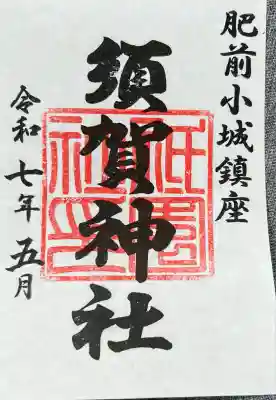 肥前小城鎮座
須賀神社
令和七年五月